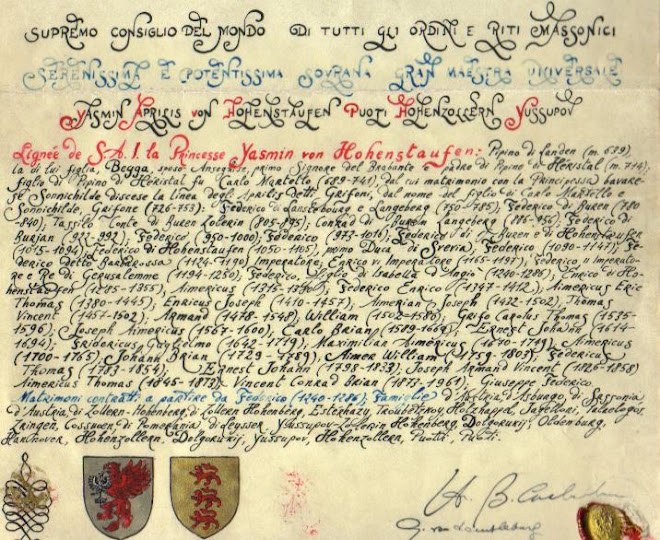 SUPREMO CONSIGLIO DEL MONDO DI TUTTI GLI ORDINI E RITI MASSONICI
SERENISSIMA E POTENTISSIMA SOVRANA GRAN MAESTRA UNIVERSALE
YASMIN APRILIS VON HOHENSTAUFEN PUOTI HOHENZOLLERN YUSSUPOV
Lignée de S.A.I. la Princesse Yasmin von Hohenstaufen: Pipino di Landen (m. 639)
la di lui figlia, Begga, sposò Ansegise, primo Signore del Brabante e padre di Pipino di Héristal (m. 714);
figlio di Pipino di Héristal fu Carlo Martello (689-741), dal cui matrimonio con la Principessa bavare-
se Sonnichilde discese la linea degli Aprilis detti Grifoni, dal nome del figlio di Carlo Martello e
Sonnichilde, Grifone (726-753): Federico di Langeberg (750-785); Federico di Buren (780
-840); Tassilo Conte di Buren Zolorin (805-895); Conrad di Buren Langeberg (886-956); Federico di
Burjan (923-992); Federico (950-1000); Federico (973-1016); Federico di Buren e di Hohenstaufen
(1015-1094); Federico di Hohenstaufen (1050-1105), primo Duca di Svevia; Federico (1090-1147); Fe-
derico detto Barbarossa (1124-1190) Imperatore; Enrico VI Imperatore (1165-1197); Federico II Imperato-
re e Re di Gerusalemme (1194-1250); Federico, figlio di Isabella d'Angiò (1240-1286); Enrico di Ho-
henstaufen (1285-1355), Aimericus (1315-), Federico Enrico (1347-1412), Aimericus Eric
Thomas (1380-1445), Enricus Joseph (1410-1457), Aimerian Joseph (1422-1502), Thomas
Vincent (1457-1502), Armand (1478-1548) William (1502-1586), Grifo Carolus Thomas (1535-
1596), Joseph Aimericus (1567-1600), Carlo Brian (1589-1664), Ernest Johann (1614-
1694); Fridericus Guglielmo (1642-1719), Maximilian Aimericus (1670-1719), Aimericus
(1700-1765), Johann Brian (1729-1789), Aimer William (1759-1803), Federicus
Thomas (1783-1854), Ernest Johann (1798-1833), Joseph Armand Vincent (1826-1858)
Aimericus Thomas (1845-1873), Vincent Conrad Brian (1873-1961), Giuseppe Federico
Matrimoni contratti a partire da Federico (1240-1286), Famiglie d'Austria, d'Asburgo, di Sassonia
d'Austria di Zollern-Hohenberg, di Zollern Hohenberg, Esterhazy, Troubetzkoy, Holzhappel, Savelloni, Paleologos
Zringen, Cossuen di Pomerania, di Leysser, Yussupov-Zollerin Hohenberg, Dolgorukij, Oldenburg,
Hannover, Hohenzollern, Dolgorukij, Yussupov, Hohenzollern, Puoti, Puoti.